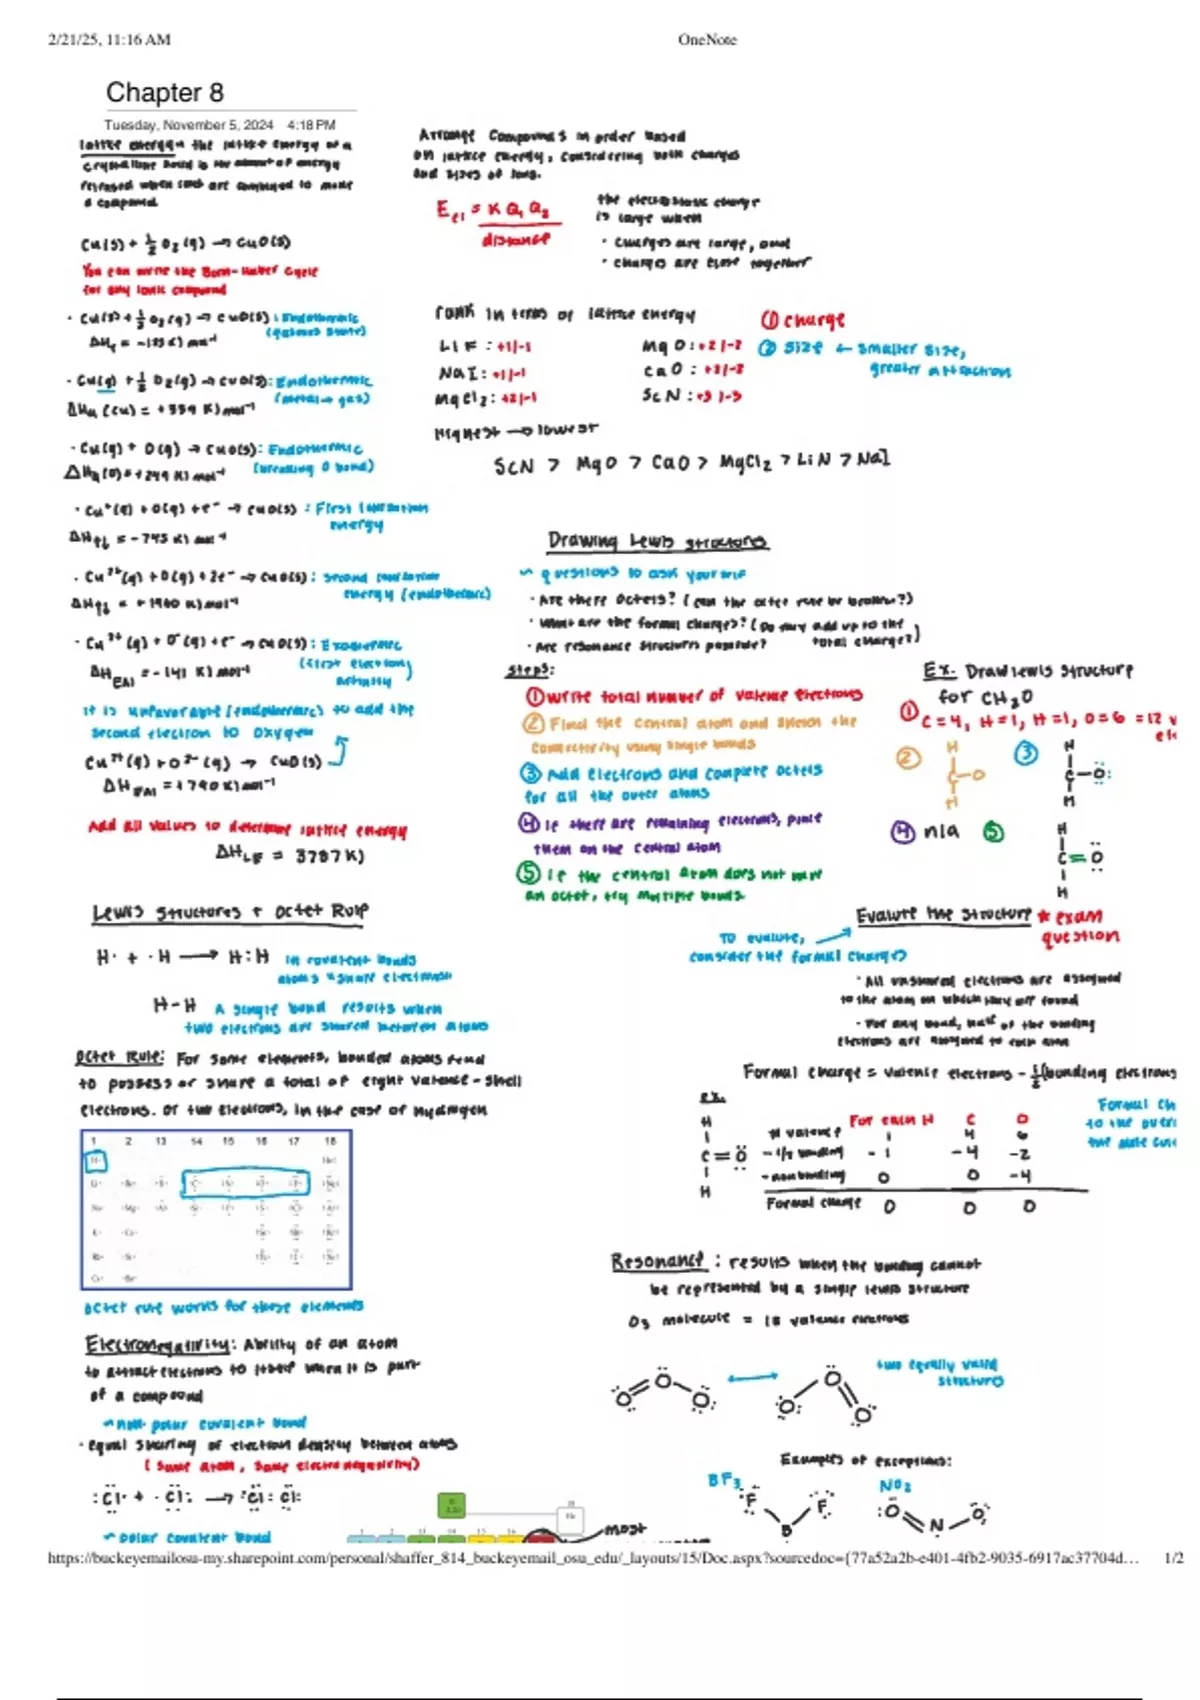 2/21/25, 11:16 AM
OneNote
Chapter 8
Tuesday, November 5, 2024 4:18 PM
lattice energy: the lattice energy of a
crystalline solid is the amount of energy
released when ions are combined to make
a compound
Cu(s) + ½ O₂(g) → CuO(s)
You can write the Born-Haber Cycle
for any ionic compound
Cu(g) + ½ O₂(g) → CuO(s): Endothermic
(metal → gas)
Cu(g) + O(g) → CuO(s): Endothermic
(breaking O bond)
ΔH (O) = +249 KJ mol⁻¹
Cu⁺(g) + O(g) + e⁻ → CuO(s): First Ionization
energy
Cu²⁺(g) + O(g) + 2e⁻ → CuO(s): second ionization
energy (endothermic)
Cu²⁺(g) + O⁻(g) + e⁻ → CuO(s): Exothermic
(first electron
affinity)
ΔH EA1 = -141 KJ mol⁻¹
It is unfavorable (endothermic) to add the
second electron to oxygen
Cu²⁺(g) + O²⁻(g) → CuO(s)
Add all values to determine lattice energy
Lewis Structures + Octet Rule
H· + ·H → H:H
In covalent bonds
atoms "share" electrons
H-H A single bond results when
two electrons are shared between atoms
Octet Rule: For some elements, bonded atoms tend
to possess or share a total of eight valence-shell
electrons. Or two electrons, in the case of hydrogen
1 2 13 14 15 16 17 18
Octet rule works for these elements
Electronegativity: Ability of an atom
to attract electrons to itself when it is part
of a compound
~ non-polar covalent bond
· equal sharing of electron density between atoms
(same atom, same electronegativity)
:Cl· + ·Cl: → :Cl:Cl:
~ polar covalent bond
Arrange Compounds in order based
on lattice energy, considering both charges
and sizes of ions.
E el = K Q₁ Q₂
distance
the electrostatic charge
is large when
· charges are large, and
· charges are close together
rank in terms of lattice energy
① charge
LiF: +1/-1
MgO: +2/-2
② size ← smaller size,
greater attraction
NaI: +1/-1
CaO: +2/-2
MgCl₂: +2/-1
ScN: +3/-3
Highest → lowest
ScN > MgO > CaO > MgCl₂ > LiN > NaI
Drawing Lewis structures
~ questions to ask yourself
· Are there octets? (can the octet rule be broken?)
· What are the formal charges? (Do they add up to the
total charge?)
· Are resonance structures possible?
Steps:
① Write total number of valence electrons
② Find the central atom and sketch the
connectivity using single bonds
③ Add electrons and complete octets
for all the outer atoms
④ If there are remaining electrons, place
them on the central atom
⑤ If the central atom does not have
an octet, try multiple bonds
Ex. Draw lewis structure
for CH₂O
① C=4, H=1, H=1, O=6 =12 v
②
H
C-O
H
③
H
C-O:
H
④ n/a
⑤
H
C=O
H
Evaluate the structure * exam
question
To evaluate,
consider the formal charges
· All unshared electrons are assigned
to the atom on which they are found
· For any bond, half of the bonding
electrons are assigned to each atom
Formal charge = valence electrons - ½(bonding electrons
Formal Ch
ex.
H
C=O
H
For each H C O
# valence 1 4 6
-1/2 bonding -1 -4 -2
-nonbonding 0 0 -4
Formal charge 0 0 0
Resonance: results when the bonding cannot
be represented by a single lewis structure
O₃ molecule = 18 valence electrons
O=O-O
O-O=O
two equally valid
structures
Examples of exceptions:
BF₃
F F
B
NO₂
O=N-O
most
https://buckeyemailosu-my.sharepoint.com/personal/shaffer_814_buckeyemail_osu_edu/_layouts/15/Doc.aspx?sourcedoc={77a52a2b-e401-4fb2-9035-6917ac37704d…
1/2